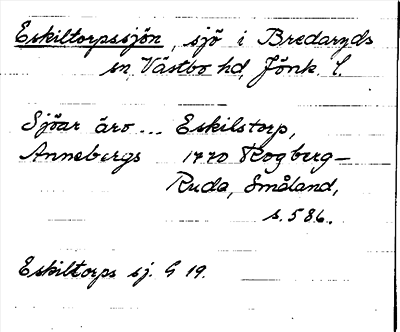 Eskiltorpssjön, sjö i Bredaryds
sn, Västbo hd, Jönk. l.
Sjöar äro... Eskilstorp,
Annebergs 1770 Rogberg-
Ruda, Småland,
s. 586.
Eskiltorps sj. G 19.